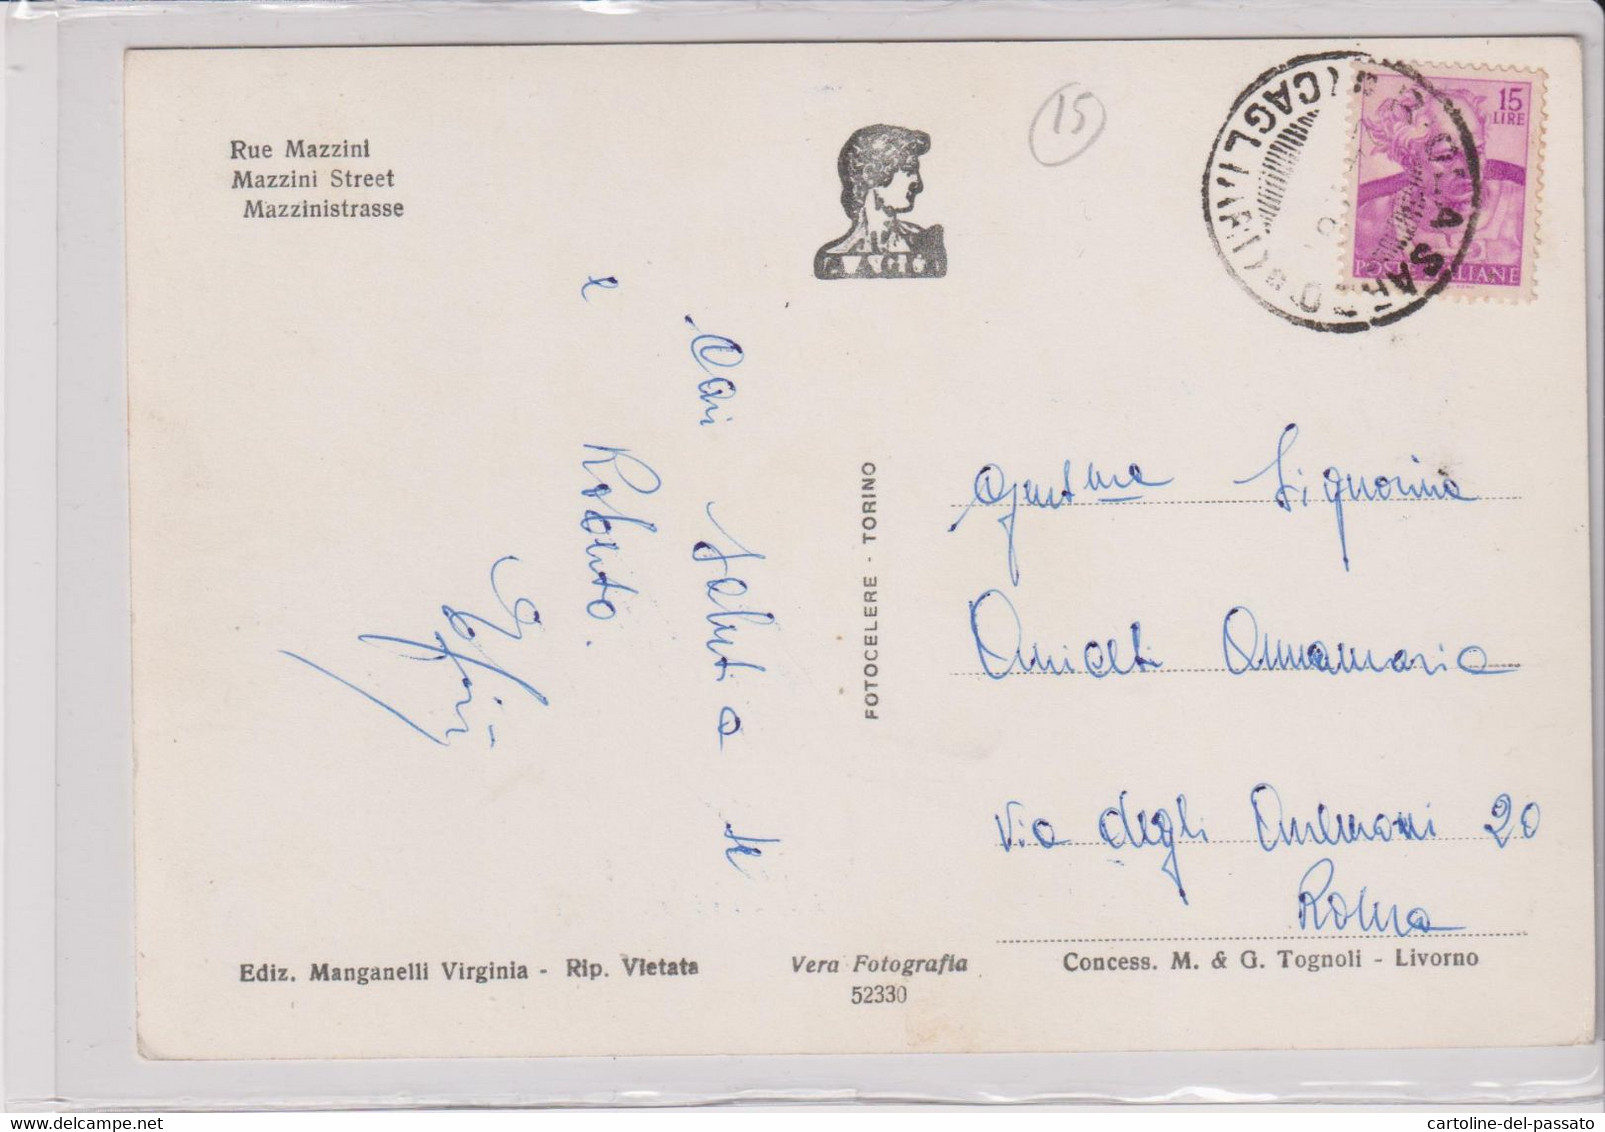 Rue Mazzini
Mazzini Street
Mazzinistrasse
Cari Saluti a te
e Roberto.
15
15
LIRE
POSTE ITALIANE
ISOLA SARDO (CAGLIARI)
FOTOCELERE - TORINO
Gent.ma Signorina
Amicti Annamaria
Via degli Anemoni 20
Roma
Ediz. Manganelli Virginia - Rip. Vietata
Vera Fotografia
52330
Concess. M. & G. Tognoli - Livorno
cartoline-del-passato